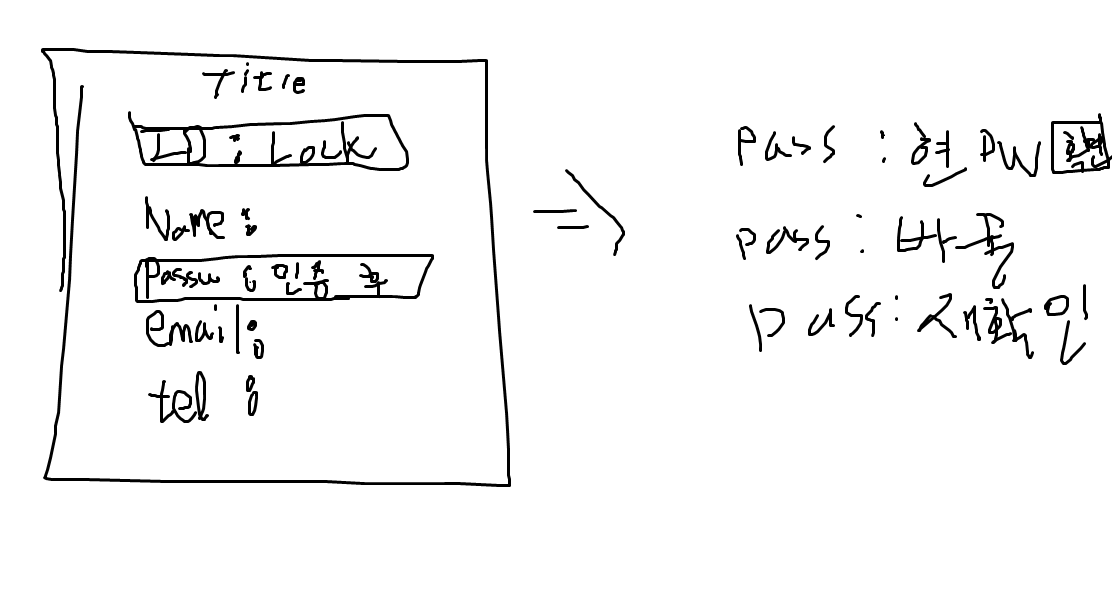 Title
ID : Lock
Name :
Passw : 인증 후
email :
tel :
pass : 현 PW
pass : 바꿀
pass : 재확인